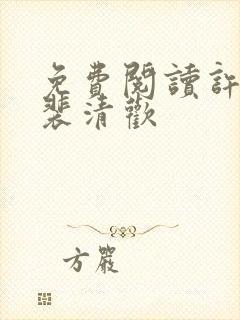 免費閱讀許
裴清歡
方嚴